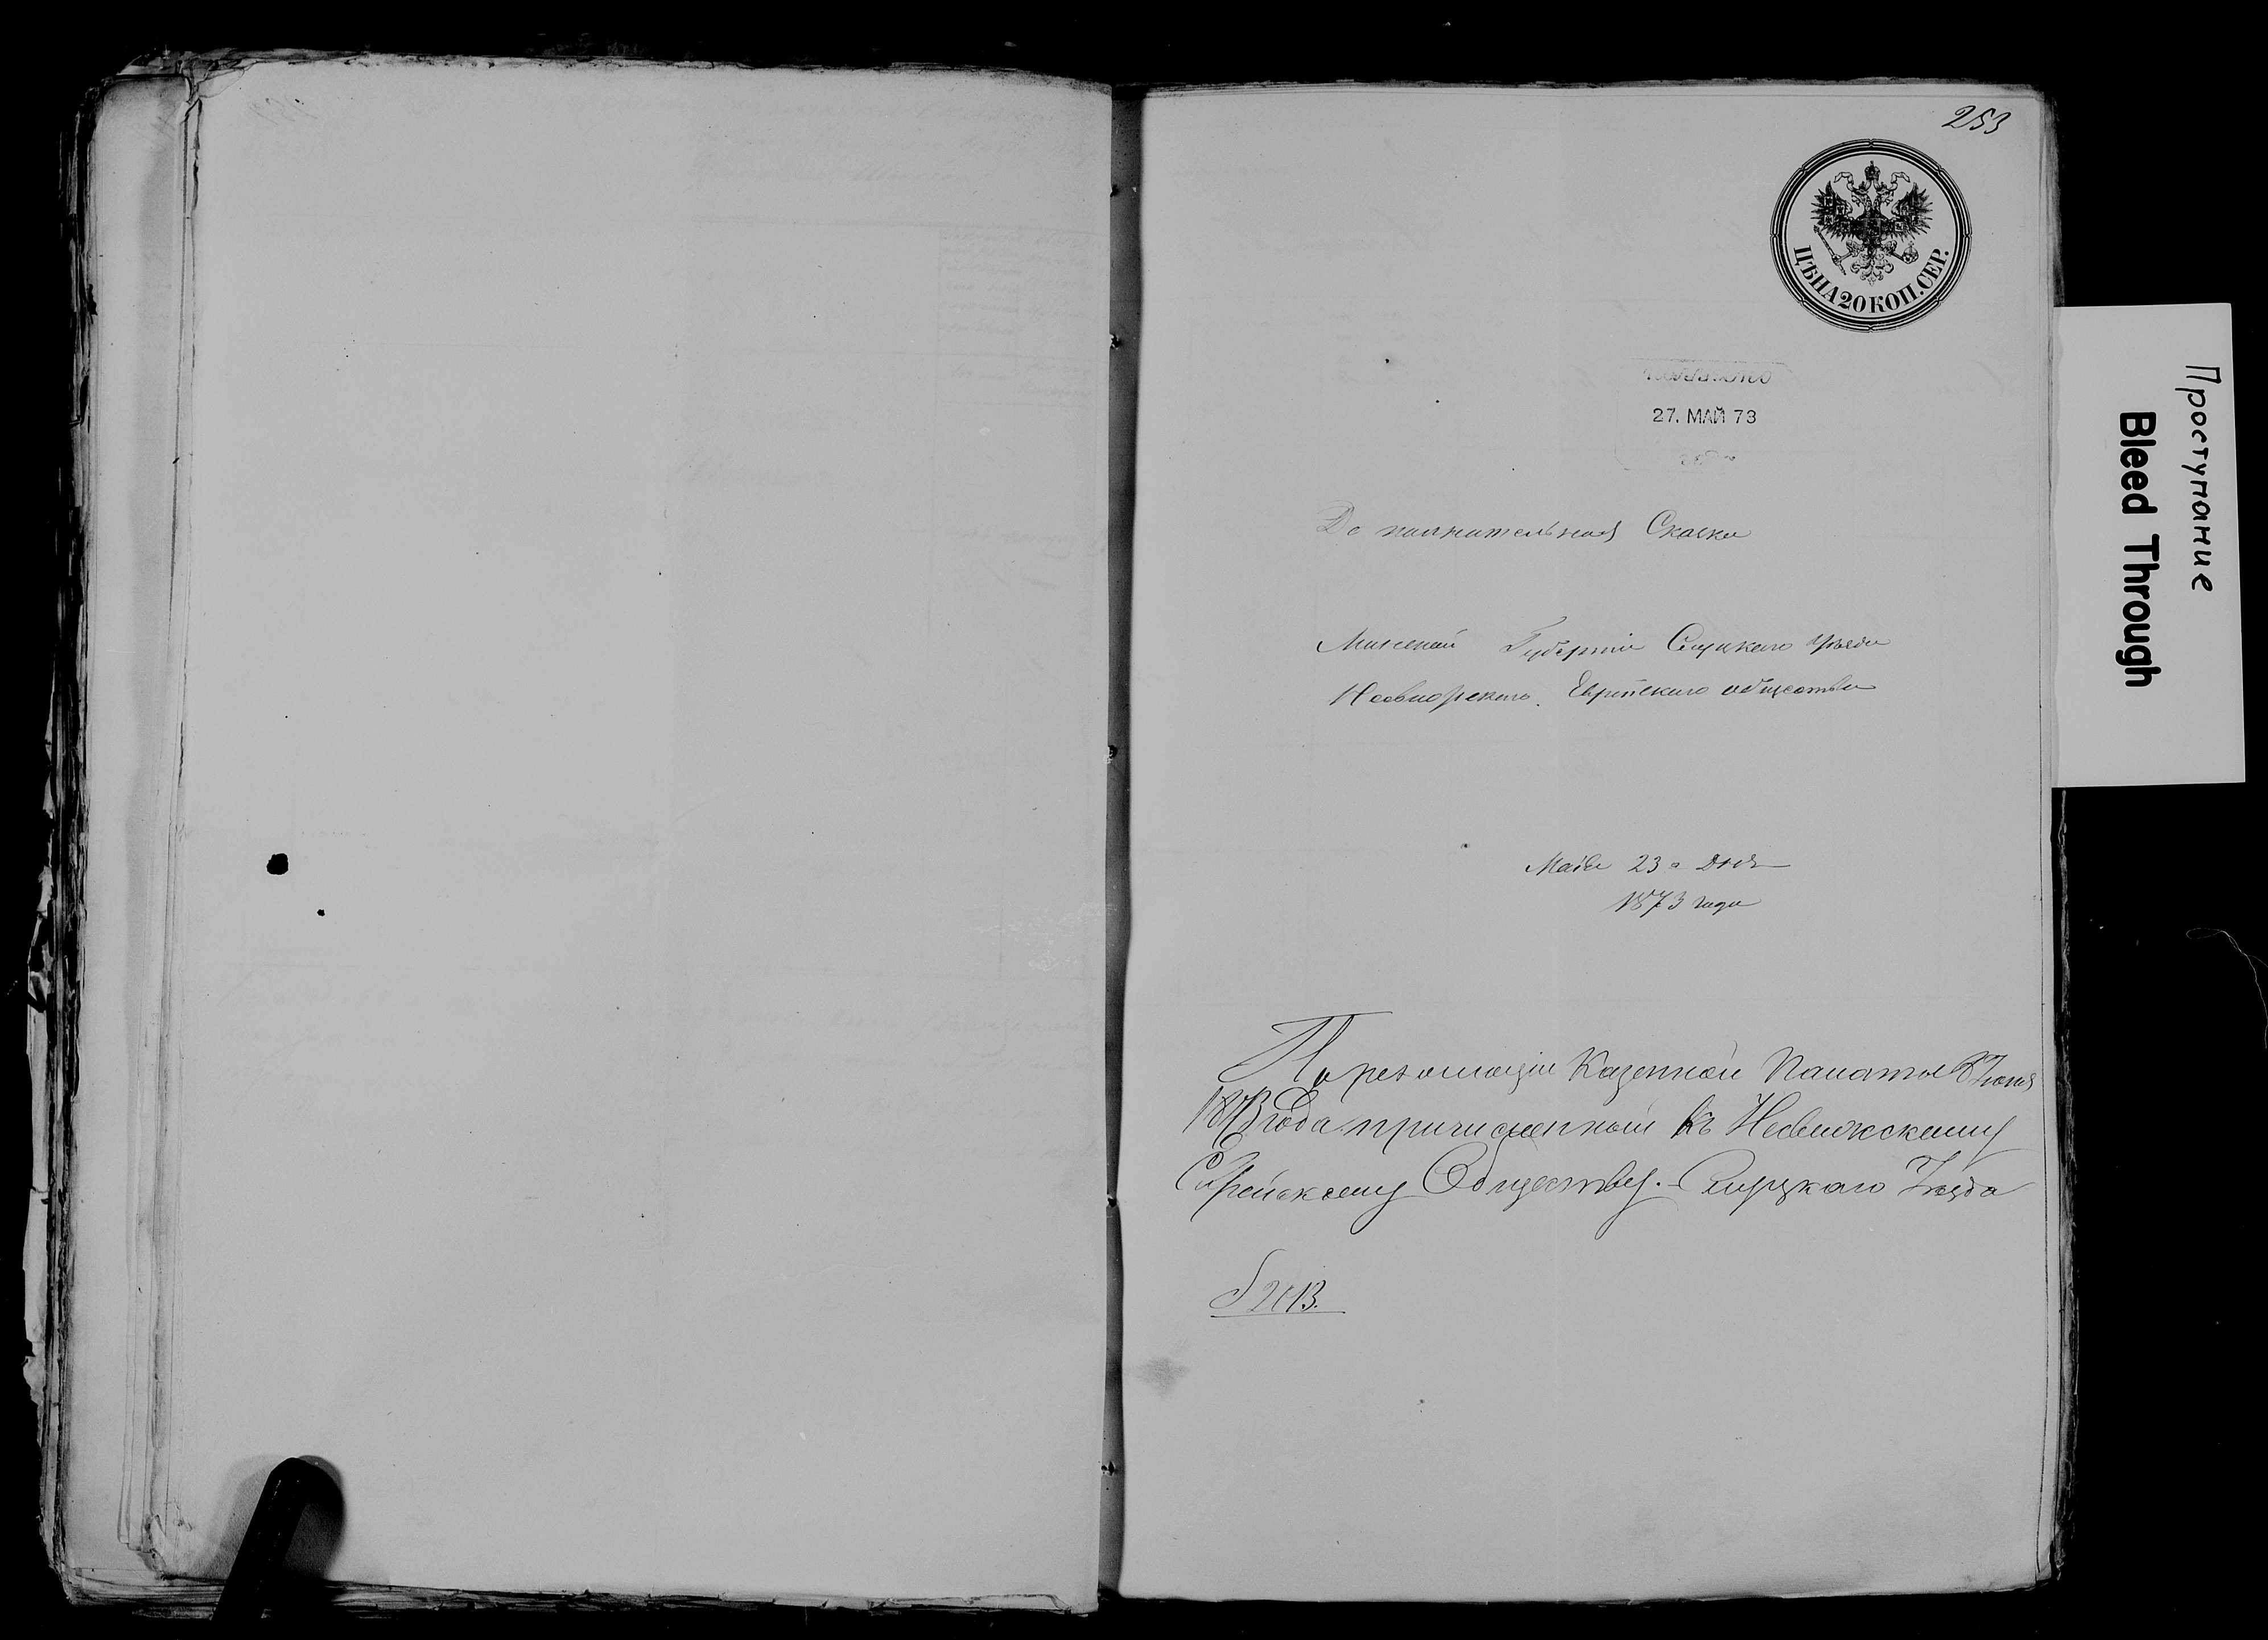 253
ЦѢНА 20 КОП. СЕР.
27. МАЙ 73
Дополнительная Сказка
Минской Губерніи Слуцкаго уѣзда
Несвижскаго Еврейскаго общества
Маія 23 дня
1873 года
По резолюціи Казенной Палаты Іюня
1873 года причисленный къ Несвижскому
Еврейскому Обществу. Слуцкаго Уѣзда
Проступание
Bleed Through